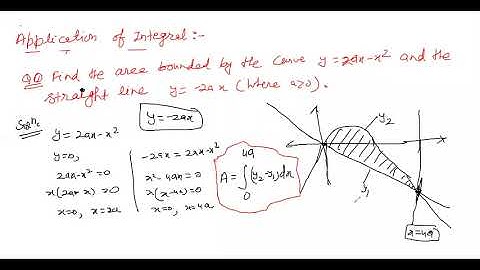 Application of Integral:-
Q① Find the area bounded by the curve y = 2ax-x² and the
straight line y = -2ax (where a>0).
Solⁿ:
y = -2ax
y = 2ax-x²
y=0,
2ax-x² = 0
x(2a-x) = 0
x=0, x=2a
-2ax = 2ax-x²
x²-4ax = 0
x(x-4a)=0
x=0, x=4a
A = ∫₀⁴ᵃ (y₂-y₁)dx
y₂
x
y₁
x=4a